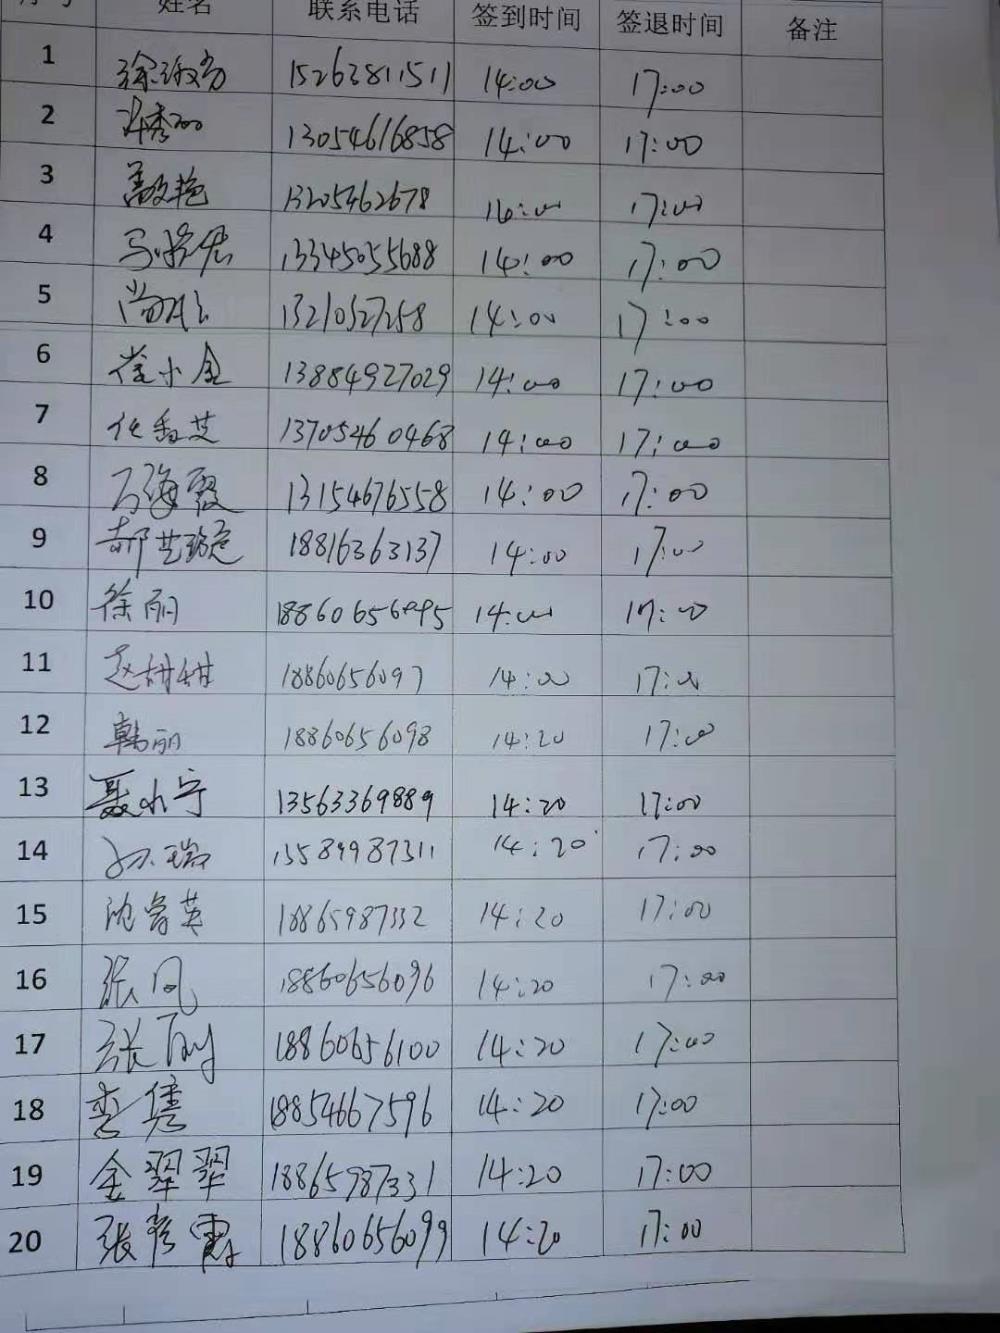 姓名 联系电话 签到时间 签退时间 备注
1 15263811511 14:00 17:00
2 13054616858 14:00 17:00
3 13205462678 17:00
4 13345055688 14:00 17:00
5 13210527258 14:00 17:00
6 崔小金 13884927029 14:00 17:00
7 任香芝 13705460468 14:00 17:00
8 石海霞 13154676558 14:00 17:00
9 郝艺璇 18816363137 14:00 17:00
10 徐丽 14:00 17:00
11 赵甜甜 18860656097 14:00 17:00
12 韩丽 18860656098 14:20 17:00
13 聂小宁 13563369889 14:20 17:00
14 孙瑞 15589987311 14:20 17:00
15 18865987332 14:20 17:00
16 张凤 18860656096 14:20 17:00
17 张丽 18860656100 14:20 17:00
18 李隽 18854667596 14:20 17:00
19 金翠翠 18865987331 14:20 17:00
20 张彦霞 18860656099 14:20 17:00